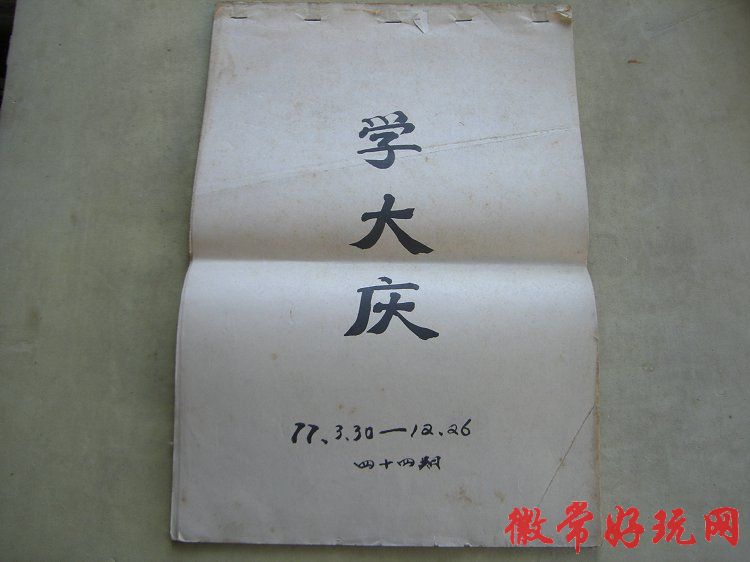 学大庆
77.3.30—12.26
四十四期
徽常好玩网